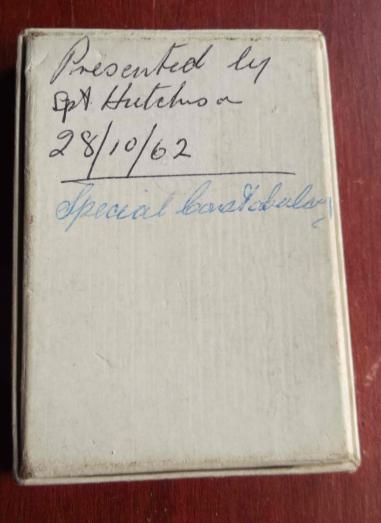 Presented by
Spt Hutchison
28/10/62
Special Constabulary